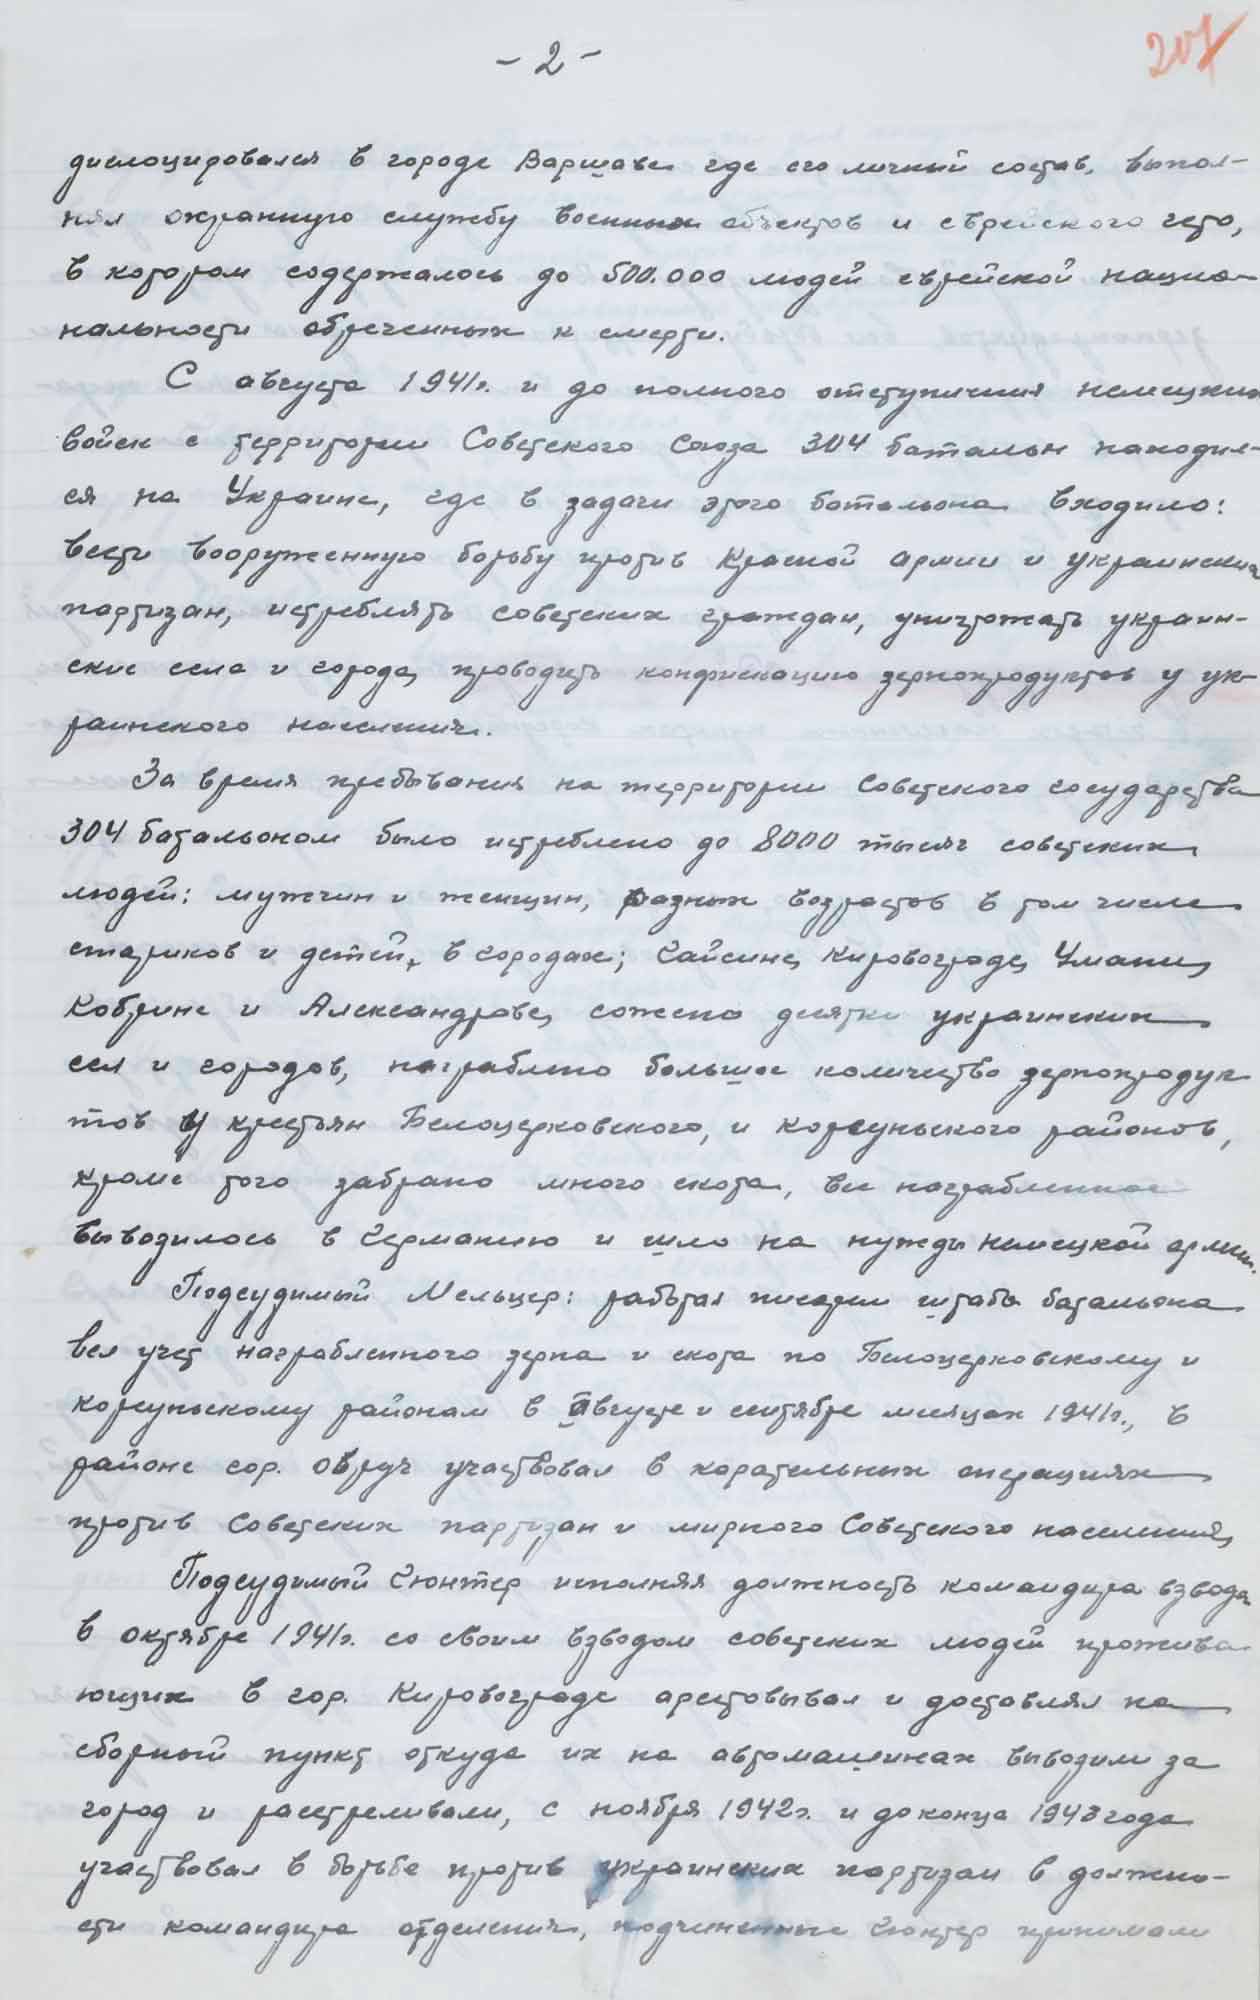 - 2 -
207
дислоцировался в городе Варшаве где его личный состав, выпол-
нял охранную службу военных объектов и еврейского гето,
в котором содержалось до 500.000 людей еврейской нацио-
нальности обреченных к смерти.
С августа 1941г. и до полного отступления немецких
войск с территории Советского Союза 304 батальон находил-
ся на Украине, где в задачи этого батальона входило:
вести вооруженную борьбу против Красной армии и украинских
партизан, истреблять советских граждан, уничтожать украин-
ские села и города, проводить конфискацию зернопродуктов у ук-
раинского населения.
За время пребывания на территории Советского государства
304 батальоном было истреблено до 8000 тысяч советских
людей: мужчин и женщин, разных возрастов в том числе
стариков и детей, в городах; Гайсине, Кировограде, Умани,
Кобрине и Александрове, сожено десятки украинских
сел и городов, награблено большое количество зернопродук-
тов у крестьян Белоцерковского, и Корсуньского районов,
кроме того забрано много скота, все награбленное
вывозилось в Германию и шло на нужды немецкой армии.
Подсудимый Мельцер: работая писарем штаба батальона
вел учет награбленного зерна и скота по Белоцерковскому и
Корсуньскому районам в августе и сентябре месяцах 1941г., в
районе гор. Овруч участвовал в карательных операциях
против Советских партизан и мирного Советского населения,
Подсудимый Гюнтер исполняя должность командира взвода
в октябре 1941г. со своим взводом советских людей прожива-
ющих в гор. Кировограде арестовывал и доставлял на
сборный пункт откуда их на автомашинах вывозили за
город и расстреливали, с ноября 1942г. и до конца 1943 года
участвовал в борьбе против украинских партизан в должно-
сти командира отделения, подчиненные Гюнтер принимали